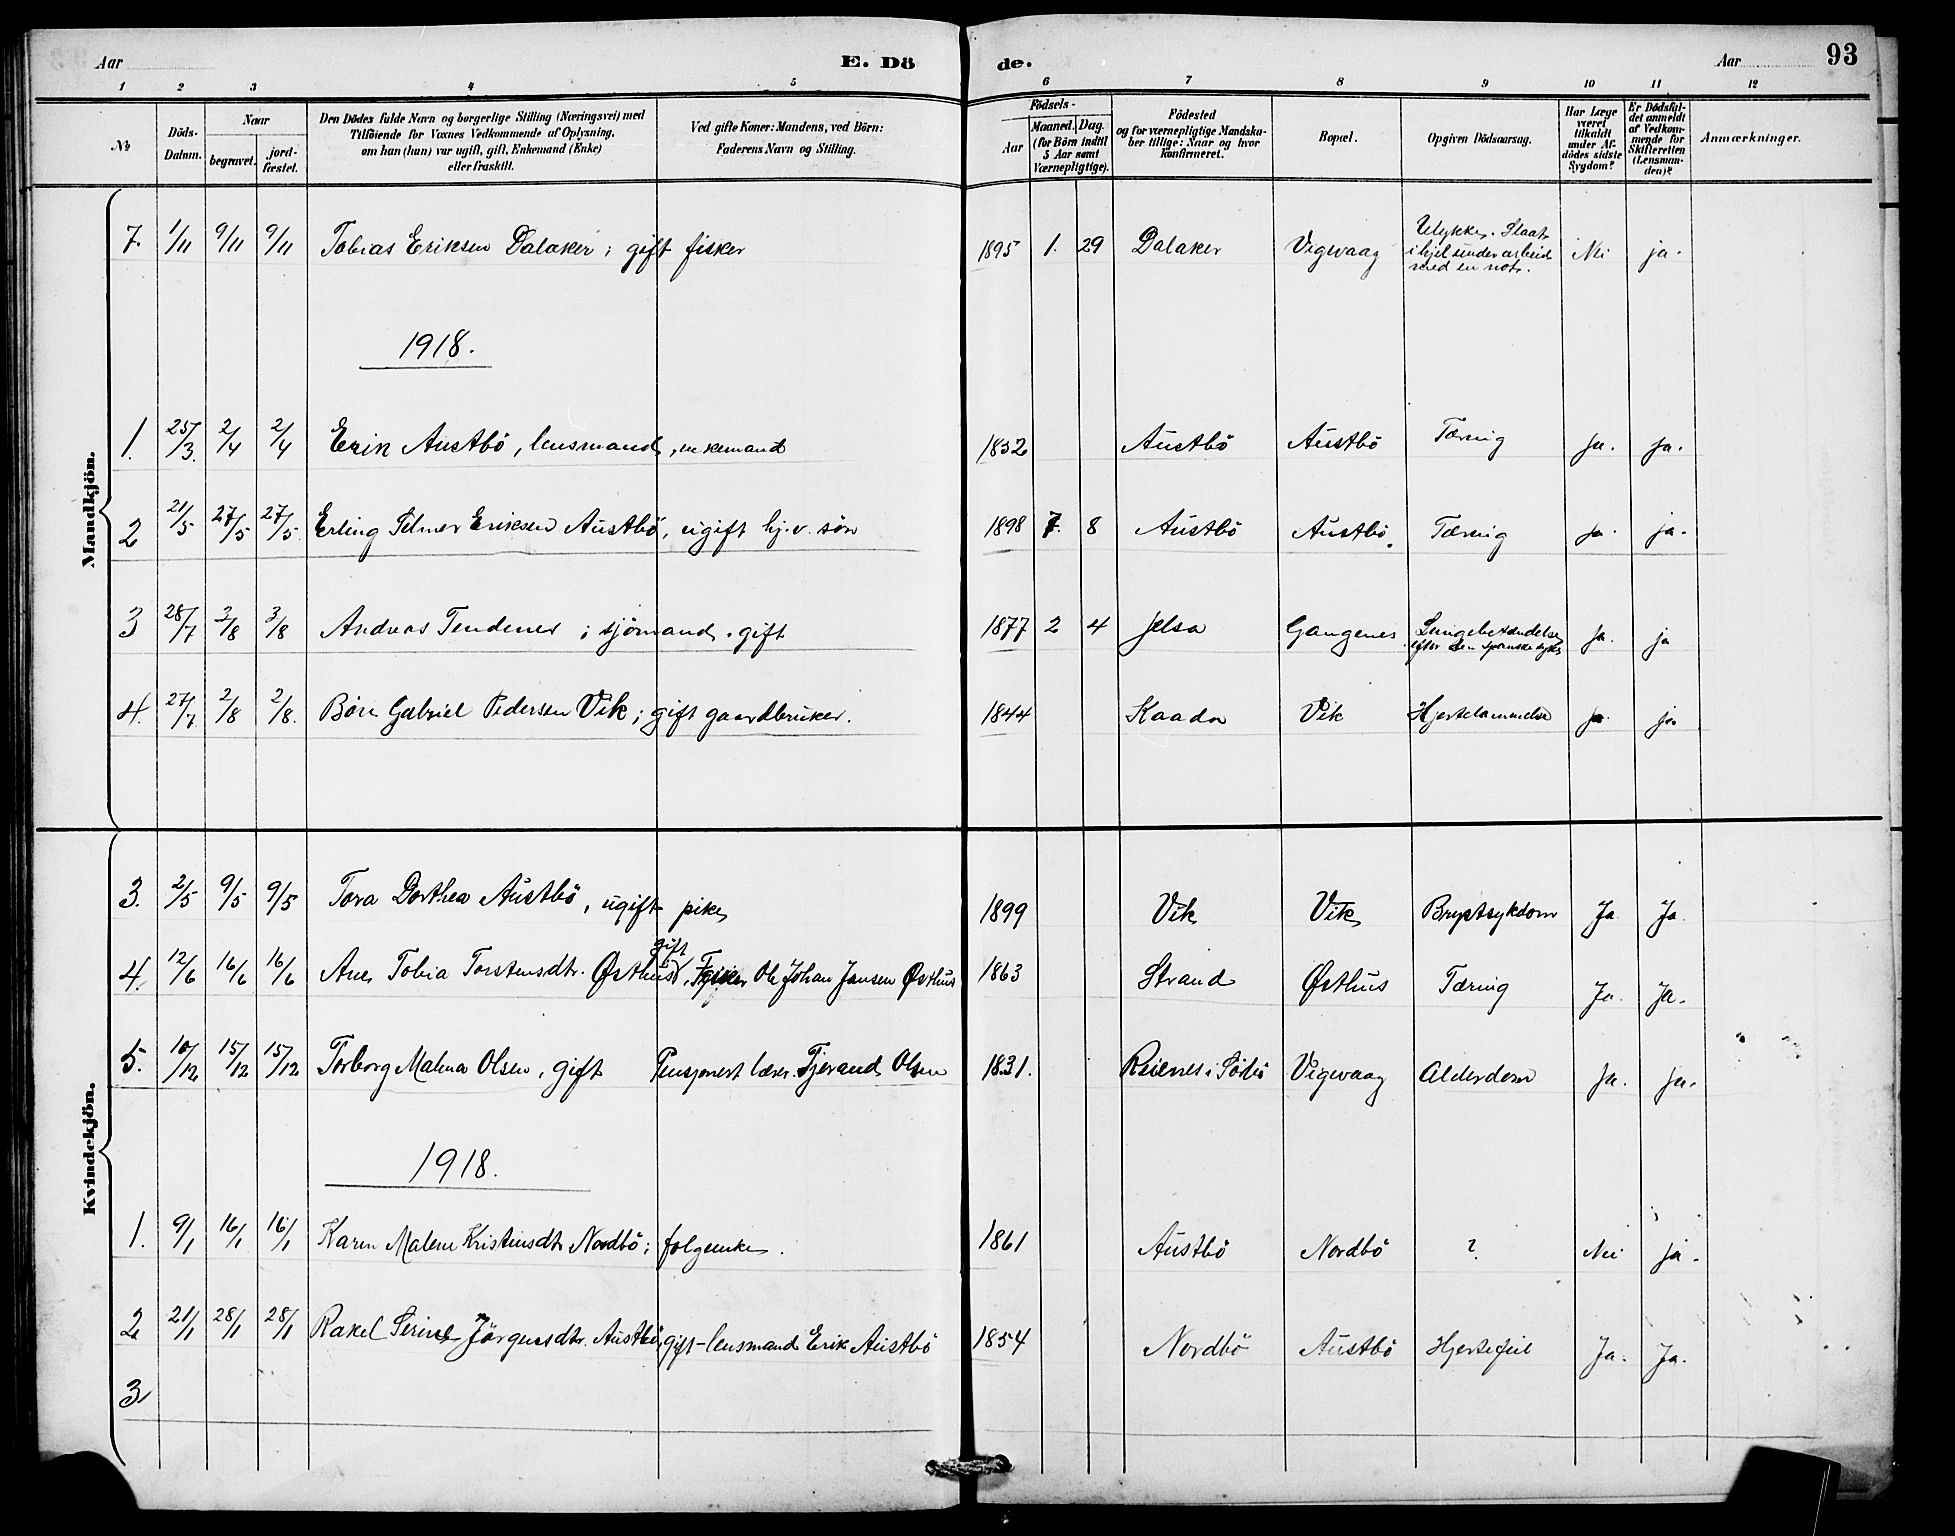 Aar
E. Dö
de.
Aar
93
1 2 3 4 5 6 7 8 9 10 11 12
No
Döds-
Datum.
Naar
begravet.
jord-
fæstet.
Den Dödes fulde Navn og borgerlige Stilling (Næringsvei) med
Tilföiende for Voxnes Vedkommende af Oplysning,
om han (hun) var ugift, gift, Enkemand (Enke)
eller fraskilt.
Ved gifte Koner: Mandens, ved Börn:
Faderens Navn og Stilling.
Födsels-
Aar
Maaned. Dag.
(for Börn indtil
5 Aar samt
Værnepligtige).
Födested
og for værnepligtige Mandska-
ber tillige: Naar og hvor
konfirmeret.
Bopæl.
Opgiven Dödsaarsag.
Har Læge
været
tilkaldt
under Af-
dödes sidste
Sygdom?
Er Dödsfal-
det anmeldt
af Vedkom-
mende for
Skifteretten
(Lensman-
den)?
Anmærkninger.
Mandkjön.
7. 1/11 9/11 9/11 Tobias Eriksen Dalaker; gift fisker 1895 1. 29 Dalaker Vigevaag Ulykke. Slaat
ihjel under arbeide
med en not. Nei ja.
1918.
1. 25/3. 2/4 2/4 Erik Austbö, lensmand, enkemand 1852 Austbö Austbö Tæring Ja. Ja.
2 21/5 27/5 27/5 Erling Selmer Eriksen Austbö, ugift hj.v. sön 1898 7. 8 Austbö Austbö. Tæring Ja. ja.
3 28/7 3/8 3/8 Andreas Tendenes; sjömand. gift 1877 2 4 Jelsa Gangenes Lungebetændelse
efter den spanske syke Ja. ja
4. 27/7 2/8 2/8. Böre Gabriel Pedersen Vik; gift gaardbruker. 1844 Kaada Vik Hjertelammelse Ja. ja
Kvindekjön.
3. 2/5 9/5 9/5 Tora Dorthea Austbö, ugift pike 1899 Vik Vik Brystsykdom Ja Ja
gift
4. 12/6 16/6 16/6 Ane Tobia Torstensdtr. Østhus, Fisker Ole Johan Jansen Østhus 1863 Strand Østhus Tæring Ja. Ja.
5. 10/12 15/12 15/12 Torborg Malena Olsen, gift Pensjonert lærer Tjerand Olsen 1831. Reienes i Sörbö Vigevaag Alderdom Ja. Ja.
1918.
1. 9/1 16/1 16/1 Karen Malene Kristensdtr Nordbö; folgeenke. 1861 Austbö Nordbö ? Nei ja.
2 21/1 28/1 28/1 Rakel Serine Jörgensdtr. Austbö, gift - lensmand Erik Austbö 1854 Nordbö Austbö Hjertefeil Ja. Ja.
3